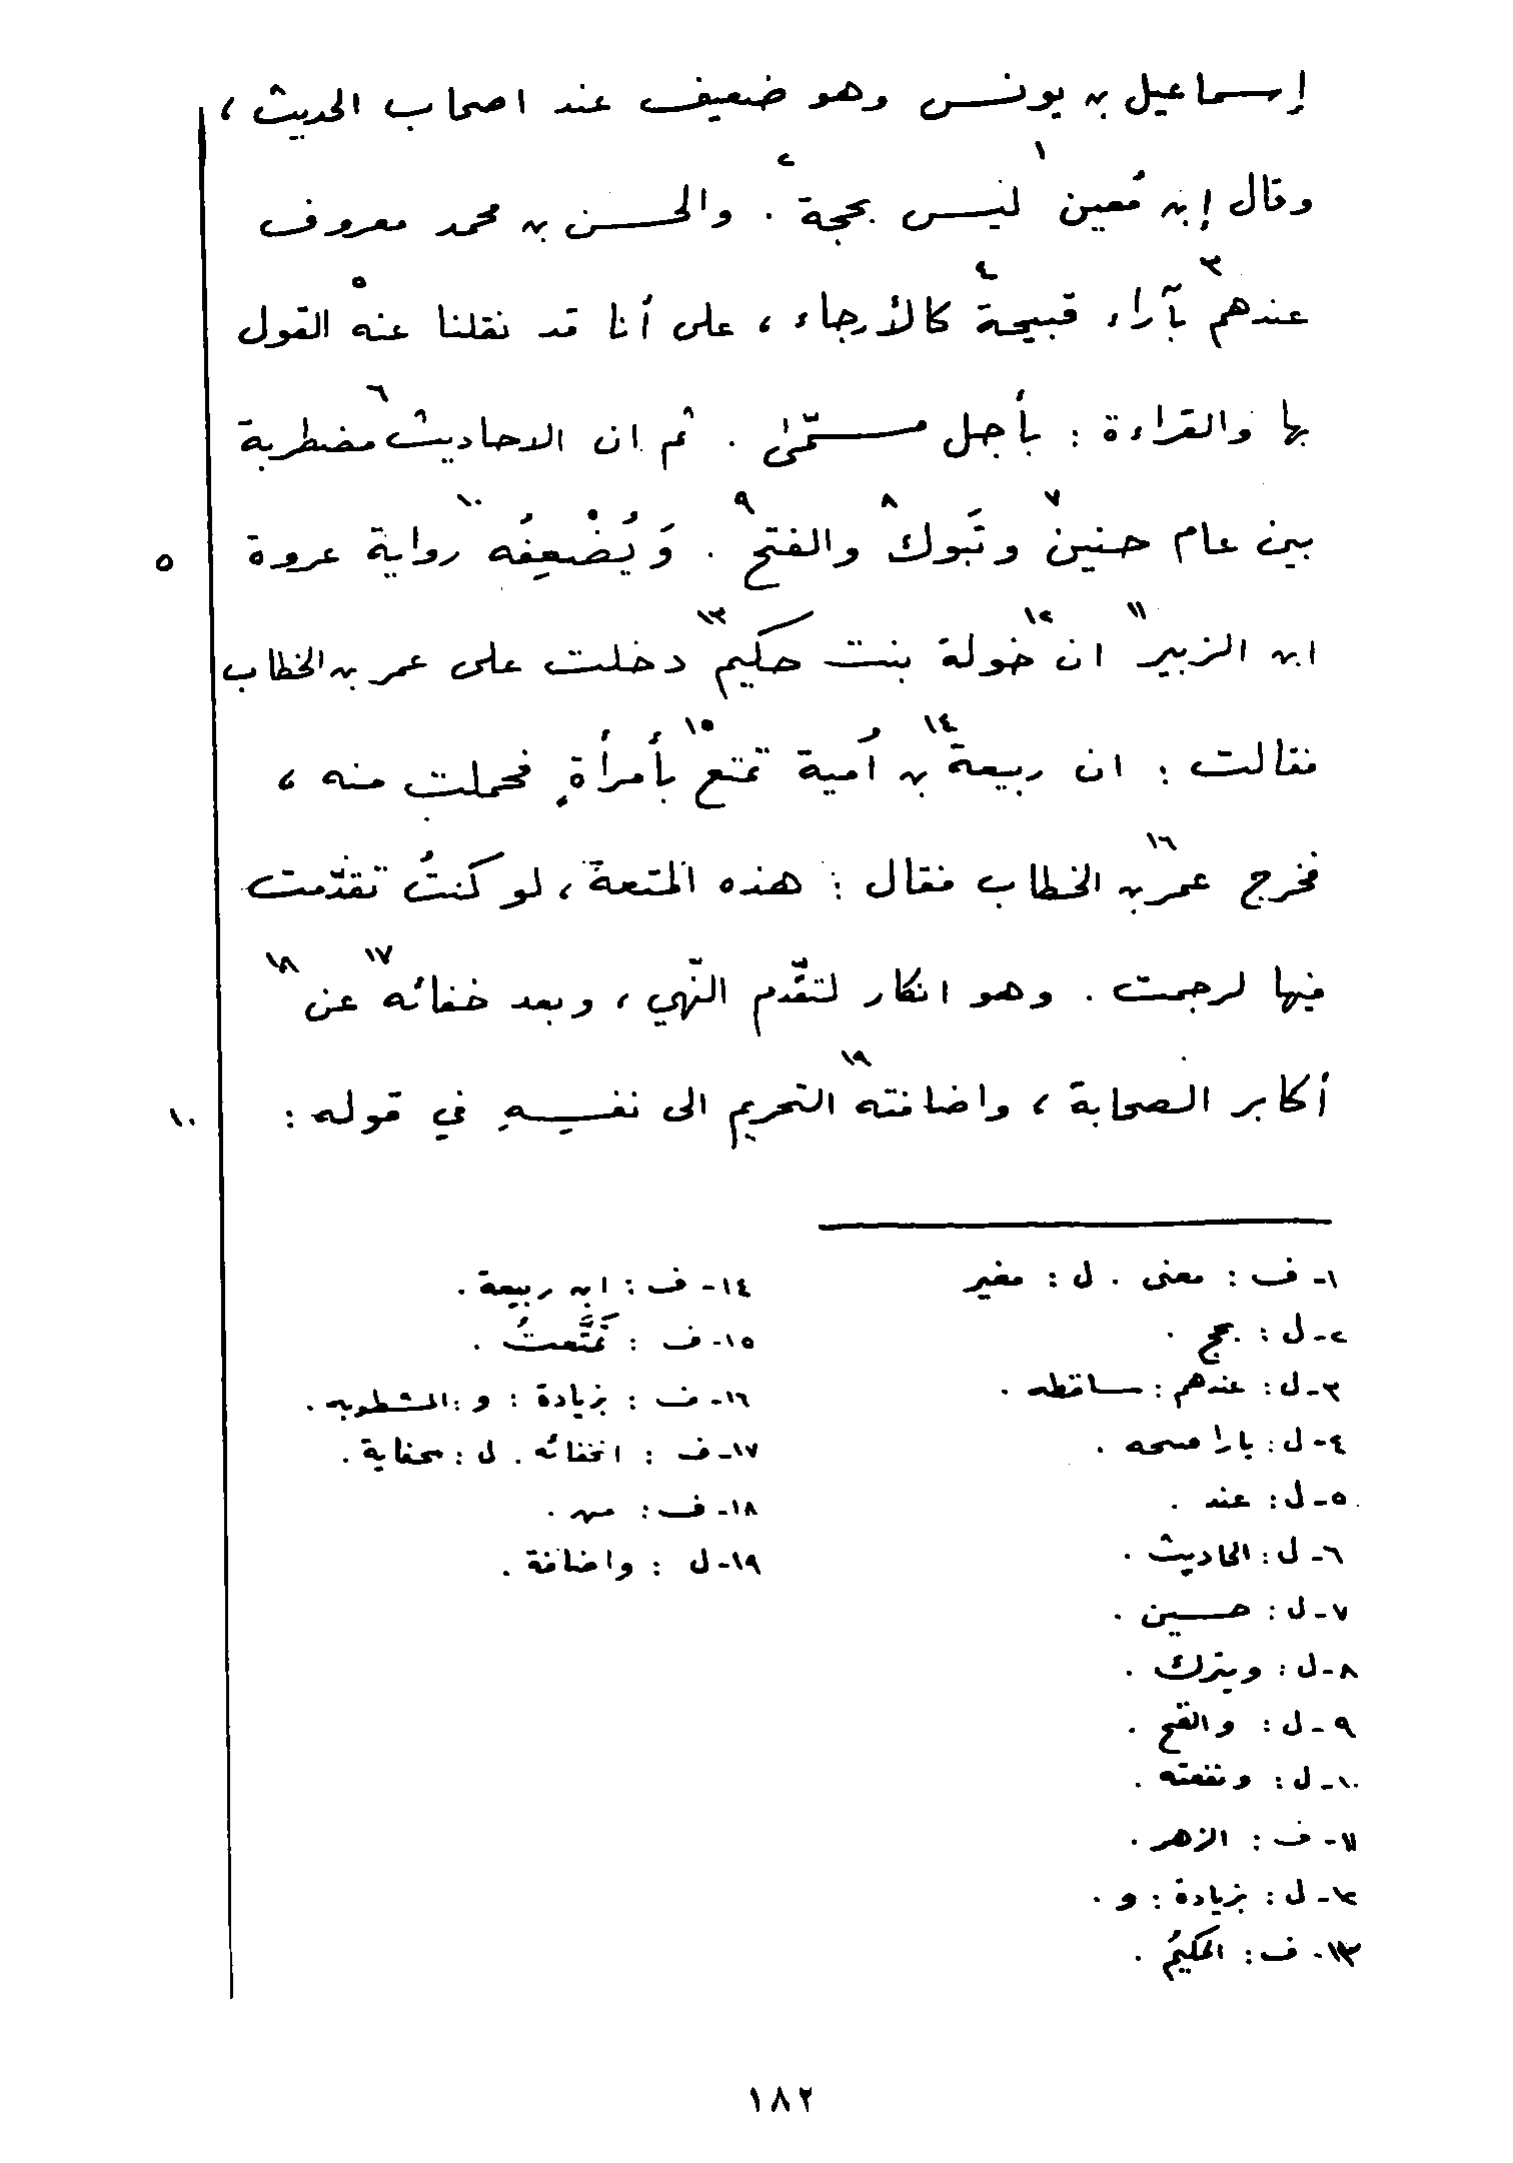 إسماعيل بن يونس وهو ضعيف عند اصحاب الحديث ،
وقال إبن مُعين ١ ليس بحجة ٢ . والحسن بن محمد معروف
عندهم ٣ بآراء قبيحة ٤ كالأرجاء ، على أنا قد نقلنا عنه ٥ القول
بها والقراءة : بأجل مسمّىٰ . ثم ان الاحاديث ٦ مضطربة
بين عام حنين ٧ وتَبوك ٨ والفتح ٩ . وَيُضْعِفُه ١٠ رواية عروة
٥
ابن الزبير ١١ ان ١٢ خولة بنت حكيم ١٣ دخلت على عمر بن الخطاب
فقالت : ان ربيعة ١٤ بن اُمية تمتع ١٥ بأمرأةٍ فحملت منه ،
فخرج عمر ١٦ بن الخطاب فقال : هذه المتعة ، لو كنتُ تقدّمت
فيها لرجمت . وهو انكار لتقّدم النّهي ، وبعد خفائه ١٧ عن ١٨
أكابر الصحابة ، واضافته ١٩ التحريم الى نفسهِ في قوله :
١٠
١- ف : معنى . ل : مغير
٢- ل : بحج .
٣- ل : عندهم : ساقطه .
٤- ل : بارا مسحه .
٥- ل : عند .
٦- ل : الحاديث .
٧- ل : حسين .
٨- ل : ويترك .
٩- ل : والقبح .
١٠- ل :
١١- ف : الزهر .
١٢- ل : بزيادة : و .
١٣- ف : الحكيمُ .
١٤- ف : ابن ربيعة .
١٥- ف : تَمَتَّعتُ .
١٦- ف : بزيادة : و :
١٧- ف : اخفائه . ل :
١٨- ف : من .
١٩- ل : واضافة .
١٨٢